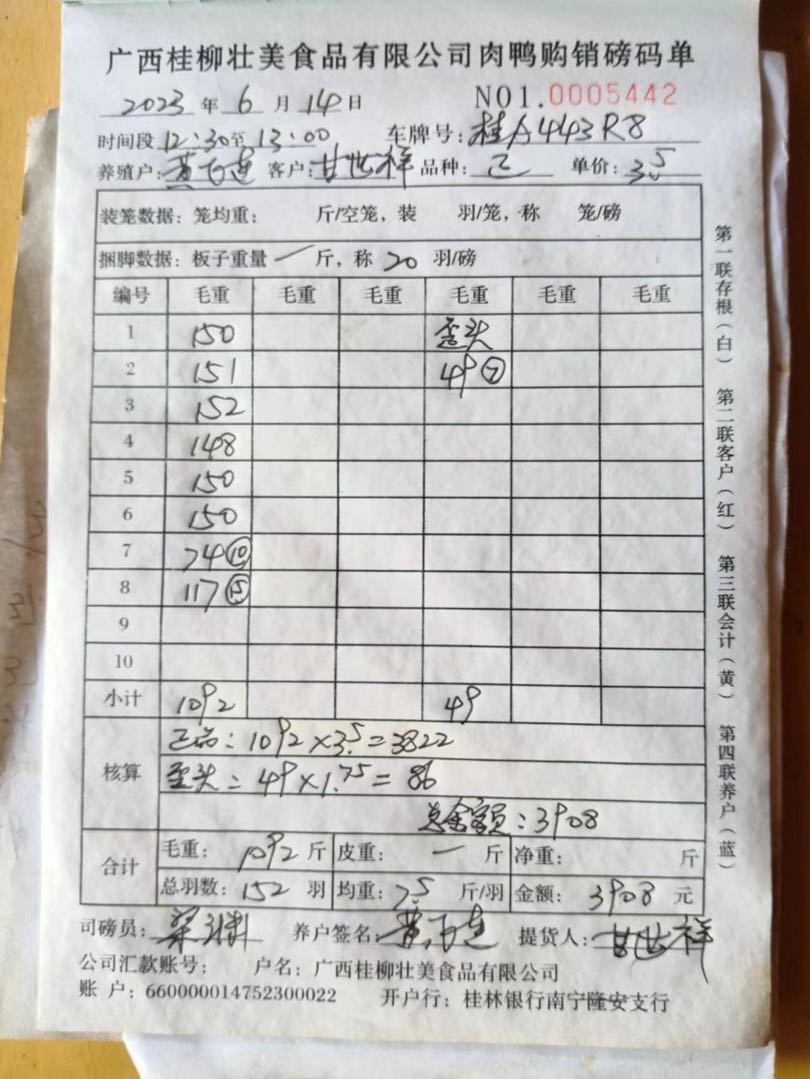 广西桂柳壮美食品有限公司肉鸭购销磅码单
2023 年 6 月 14 日 NO1.0005442
时间段 12:30至 13:00 车牌号: 桂A443R8
养殖户: 客户: 甘世祥 品种: 单价: 3.5
装笼数据: 笼均重: 斤/空笼, 装 羽/笼, 称 笼/磅
捆脚数据: 板子重量 一 斤, 称 20 羽/磅
编号 毛重 毛重 毛重 毛重 毛重 毛重
1 150 歪头
2 151 49⑦
3 152
4 148
5 150
6 150
7 74⑩
8 117⑮
9
10
小计 1092 49
核算
正品: 1092×3.5=3822
歪头: 49×1.75=86
总金额: 3908
合计
毛重: 1092 斤 皮重: 一 斤 净重: 斤
总羽数: 152 羽 均重: 7.5 斤/羽 金额: 3908 元
司磅员: 养户签名: 提货人: 甘世祥
公司汇款账号: 户名: 广西桂柳壮美食品有限公司
账 户: 660000014752300022 开户行: 桂林银行南宁隆安支行
第一联存根(白) 第二联客户(红) 第三联会计(黄) 第四联养户(蓝)